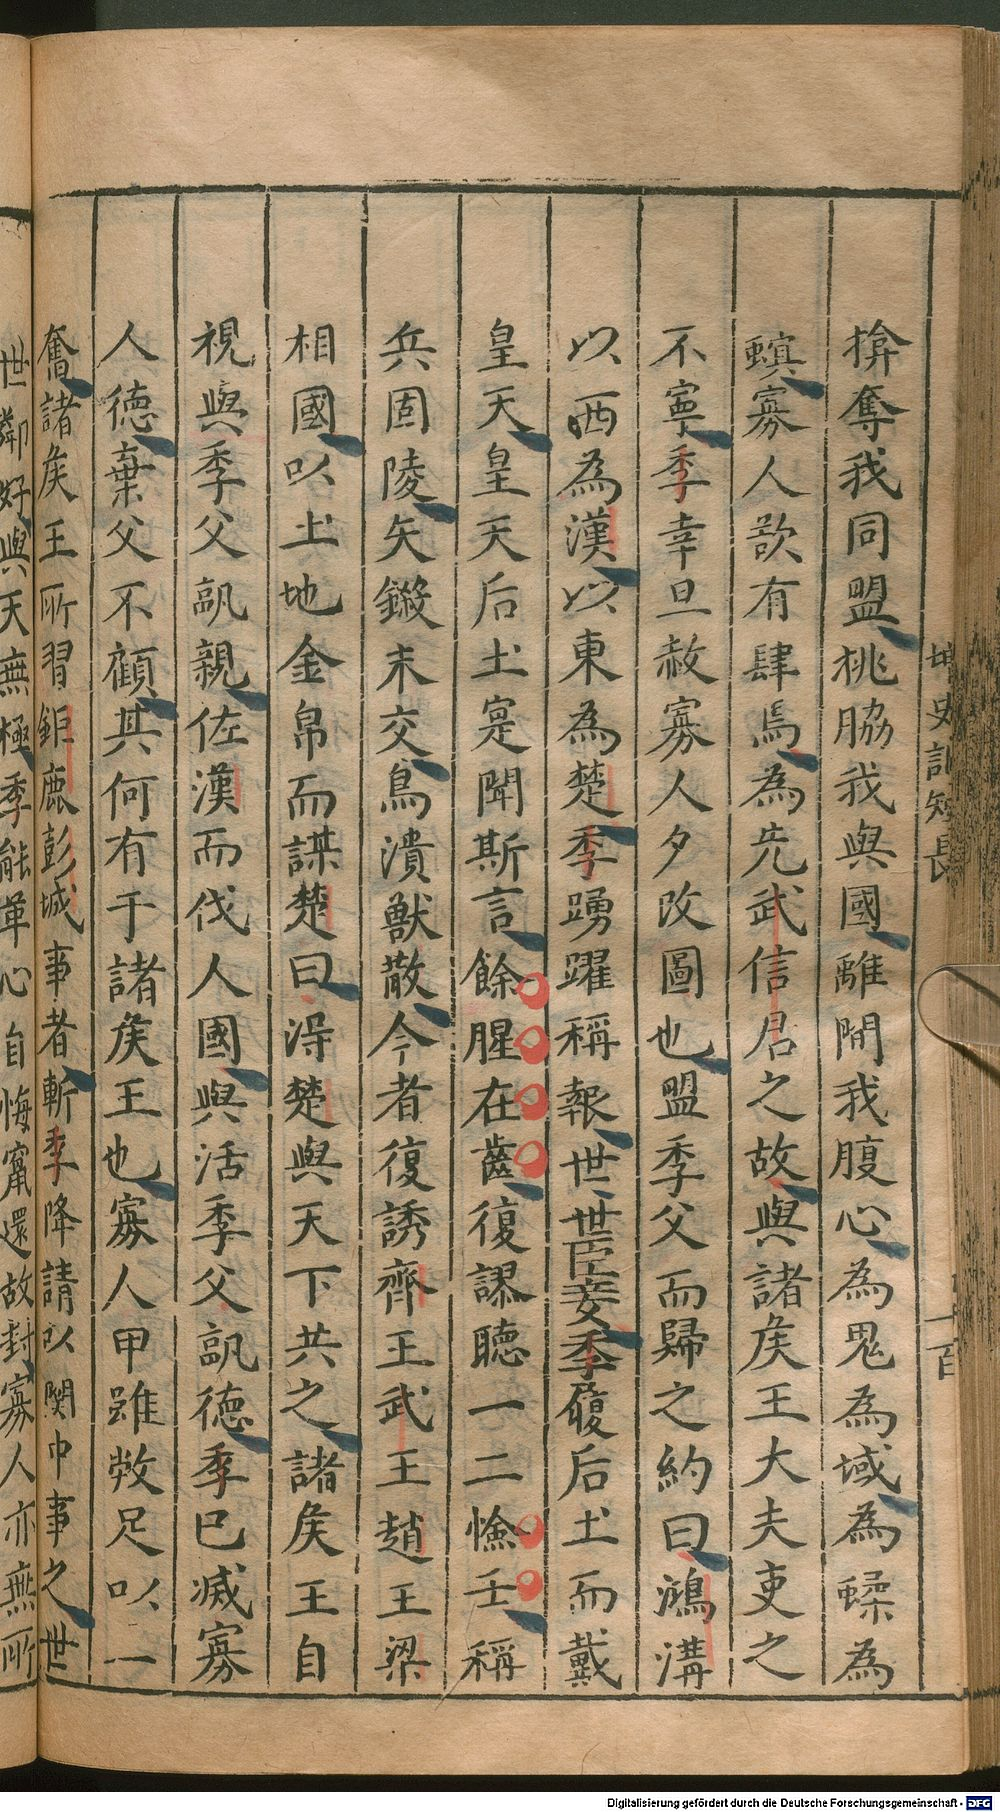 揜奪我同盟桃脇我與國離間我腹心為鬼為域為蟓為
螾寡人欲有肆焉為先武信君之故與諸矦王大夫吏之
不寧季幸旦赦寡人夕改圖也盟季父而歸之約曰鴻溝
以西為漢以東為楚季踴躍稱報世世臣妾季履后土而戴
皇天皇天后土寔聞斯言餘腥在齒復謬聽一二憸壬稱
兵固陵矢鏃未交鳥潰獸散今者復誘齊王武王趙王梁
相國以土地金帛而謀楚曰得楚與天下共之諸矦王自
視與季父訊親佐漢而伐人國與活季父訊德季已滅寡
人德棄父不顧其何有于諸矦王也寡人甲雖敝足以一
奮諸矦王所習鉅鹿彭城事者斬季降請以関中事之世
世鄰好與天無極季能革心自悔甯還故封寡人亦無所
史記短長
一百
Digitalisierung gefördert durch die Deutsche Forschungsgemeinschaft - DFG